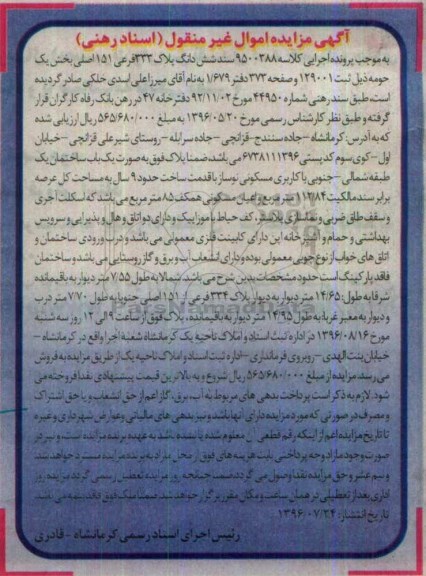 آگهی مزایده اموال غیر منقول (اسناد رهنی)
به موجب پرونده اجرایی کلاسه ۹۵۰۰۳۸۸ سند شش دانگ پلاک ۳۳۳ فرعی ۱۵۱ اصلی بخش یک
حومه ذیل ثبت ۱۲۹۰۰۱ و صفحه ۳۷۳ دفتر ۱/۶۷۹ به نام آقای میرزاعلی اسدی خلکی صادر گردیده
است، طبق سند رهنی شماره ۴۴۹۵۰ مورخ ۹۲/۱۱/۰۲ دفترخانه ۴۷ در رهن بانک رفاه کارگران قرار
گرفته و طبق نظر کارشناس رسمی مورخ ۱۳۹۶/۰۵/۲۰ به مبلغ ۵۶۵/۶۸۰/۰۰۰ ریال ارزیابی شده
که به آدرس: کرمانشاه - جاده سنندج - قزانچی - جاده سرابله - روستای شیرعلی قزانچی - خیابان
اول - کوی سوم کدپستی ۶۷۳۸۱۱۱۳۹۶ می باشد ضمنا پلاک فوق به صورت یک باب ساختمان یک
طبقه شمالی - جنوبی با کاربری مسکونی نوساز با قدمت ساخت حدود ۹ سال به مساحت کل عرصه
برابر سند مالکیت ۱۱۲/۸۴ متر مربع و اعیان مسکونی همکف ۸۵ متر مربع می باشد که اسکلت آجری
و سقف طاق ضربی و نماسازی پلاستر، کف حیاط با موزاییک و دارای دو اتاق و هال و پذیرایی و سرویس
بهداشتی و حمام و آشپزخانه این دارای کابینت فلزی معمولی می باشد و درب ورودی ساختمان و
اتاق های خواب از نوع چوبی معمولی بوده و دارای انشعاب آب و برق و گاز روستایی می باشد و ساختمان
فاقد پارکینگ است حدود مشخصات بدین شرح می باشد. شمالا به طول ۷/۵۵ متر دیوار به باقیمانده
شرقا به طول: ۱۴/۶۵ متر دیوار به دیوار پلاک ۳۳۴ فرعی از ۱۵۱ اصلی جنوبا به طول ۷/۷۰ متر درب
و دیوار به معبر غربا به طول ۱۴/۹۵ متر دیوار به باقیمانده، پلاک فوق از ساعت ۹ الی ۱۲ روز سه شنبه
مورخ ۱۳۹۶/۰۸/۱۶ در اداره ثبت اسناد و املاک ناحیه یک کرمانشاه شعبه اجرا واقع در کرمانشاه -
خیابان بنت الهدی - روبروی فرمانداری - اداره ثبت اسناد و املاک ناحیه یک از طریق مزایده به فروش
می رسد. مزایده از مبلغ ۵۶۵/۶۸۰/۰۰۰ ریال شروع و به بالاترین قیمت پیشنهادی نقدا فروخته می
شود. لازم به ذکر است پرداخت بدهی های مربوط به آب، برق، گاز اعم از حق انشعاب و یا حق اشتراک
و مصرف در صورتی که مورد مزایده دارای آنها باشد و نیز بدهی های مالیاتی و عوارض شهرداری و غیره
تا تاریخ مزایده اعم از اینکه رقم قطعی آن معلوم شده یا نشده باشد به عهده برنده مزایده است و نیز در
صورت وجود مازاد وجه پرداختی بابت هزینه های فوق از محل مازاد به برنده مزایده مسترد خواهد شد
و نیم عشر و حق مزایده نقدا وصول می گردد ضمنا چنانچه روز مزایده تعطیل رسمی گردد مزایده روز
اداری بعد از تعطیلی در همان ساعت و مکان مقرر برگزار خواهد شد.
تاریخ انتشار: ۱۳۹۶/۰۷/۲۴
رئیس اجرای اسناد رسمی کرمانشاه - قادری